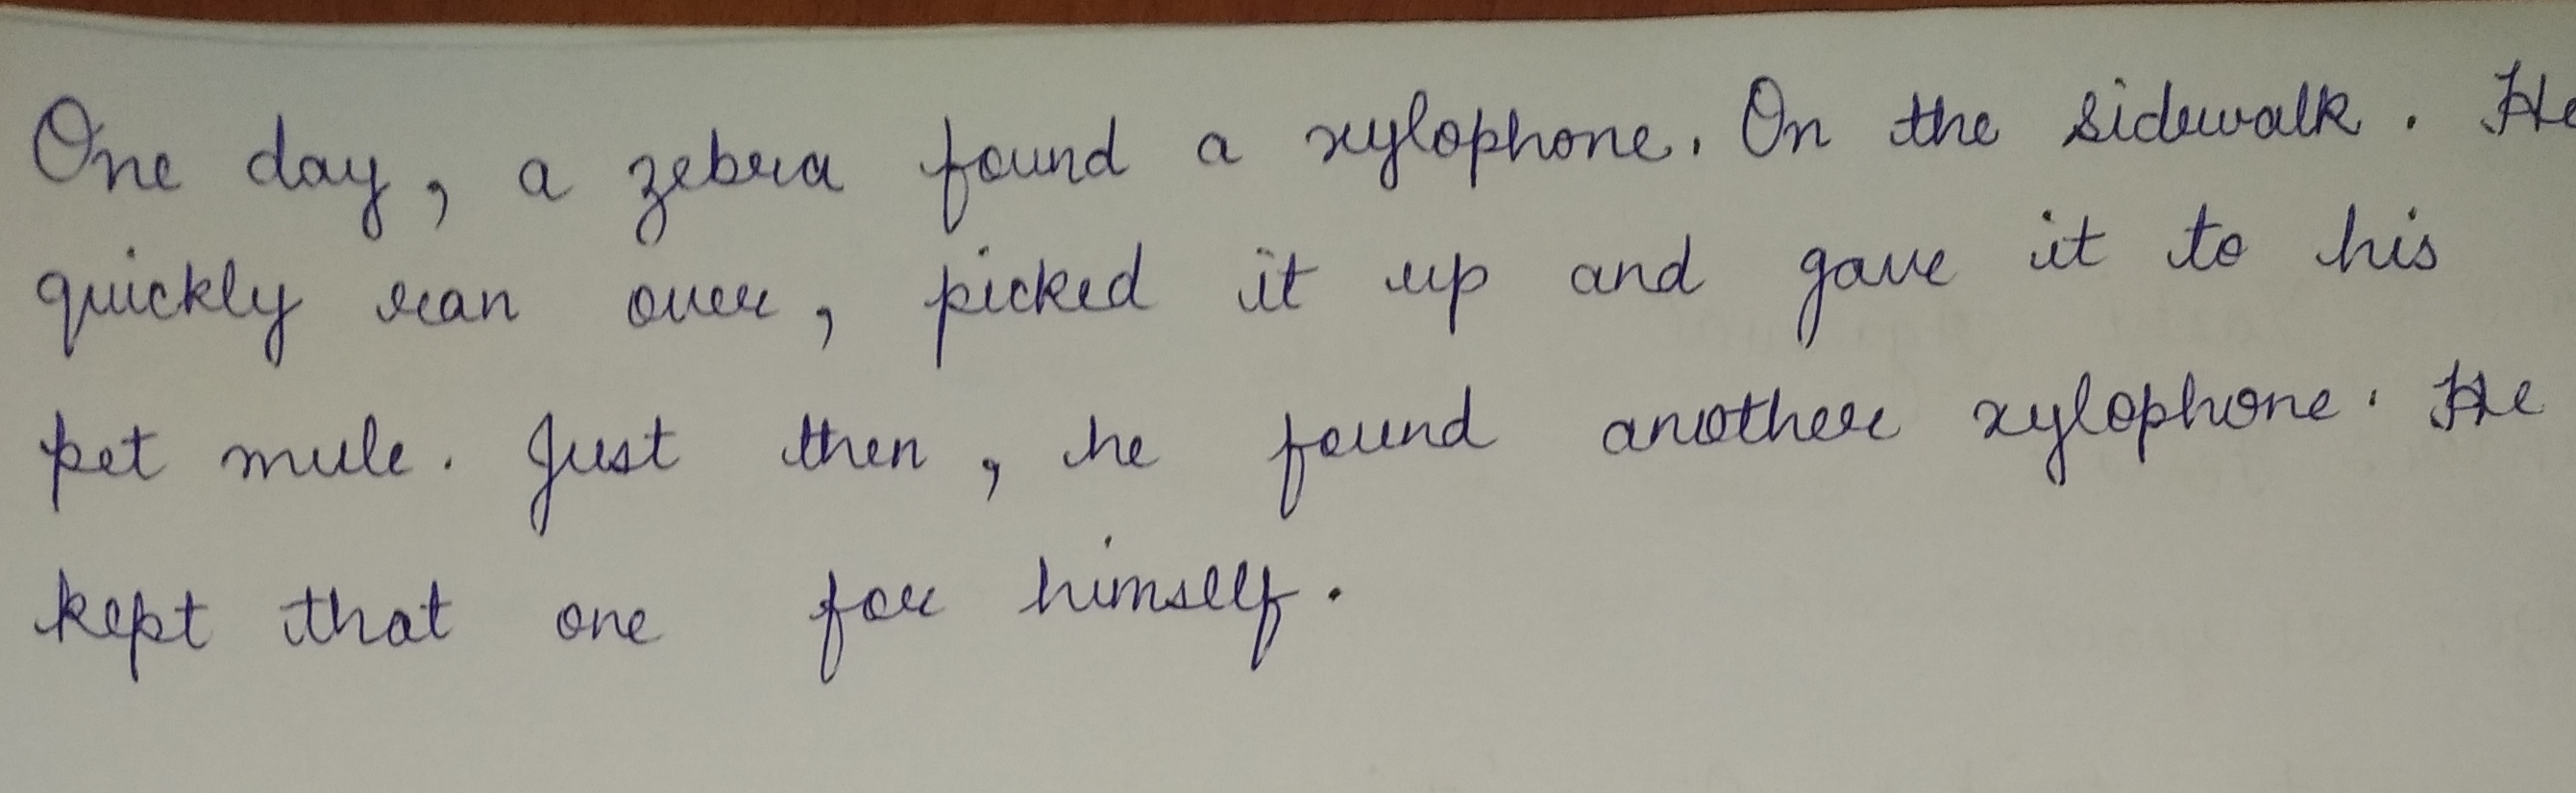 One day, a zebra found a xylophone. On the sidewalk. He
quickly ran over, picked it up and gave it to his
pet mule. Just then, he found another xylophone. He
kept that one for himself.